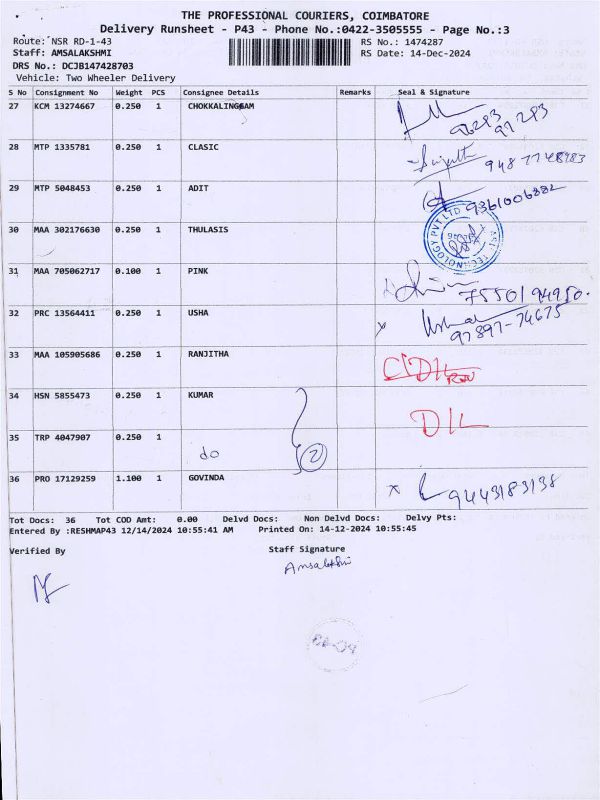 THE PROFESSIONAL COURIERS, COIMBATORE
Delivery Runsheet - P43 - Phone No.:0422-3505555 - Page No.:3
Route: NSR RD-1-43 RS No.: 1474287
Staff: AMSALAKSHMI RS Date: 14-Dec-2024
DRS No.: DCJB147428703
Vehicle: Two Wheeler Delivery
S No Consignment No Weight PCS Consignee Details Remarks Seal & Signature
27 KCM 13274667 0.250 1 CHOKKALINGAM
96293
97293
28 MTP 1335781 0.250 1 CLASIC
29 MTP 5048453 0.250 1 ADIT 9361006882
30 MAA 302176630 0.250 1 THULASIS
TECHNOLOGY PVT LTD
31 MAA 705062717 0.100 1 PINK
7550194950.
32 PRC 13564411 0.250 1 USHA x Usha
97897-74675
33 MAA 105905686 0.250 1 RANJITHA
34 HSN 5855473 0.250 1 KUMAR D/L
35 TRP 4047907 0.250 1
do 2
36 PRO 17129259 1.100 1 GOVINDA x 9443183138
Tot Docs: 36 Tot COD Amt: 0.00 Delvd Docs: Non Delvd Docs: Delvy Pts:
Entered By :RESHMAP43 12/14/2024 10:55:41 AM Printed On: 14-12-2024 10:55:45
Verified By Staff Signature
Amsalakshmi